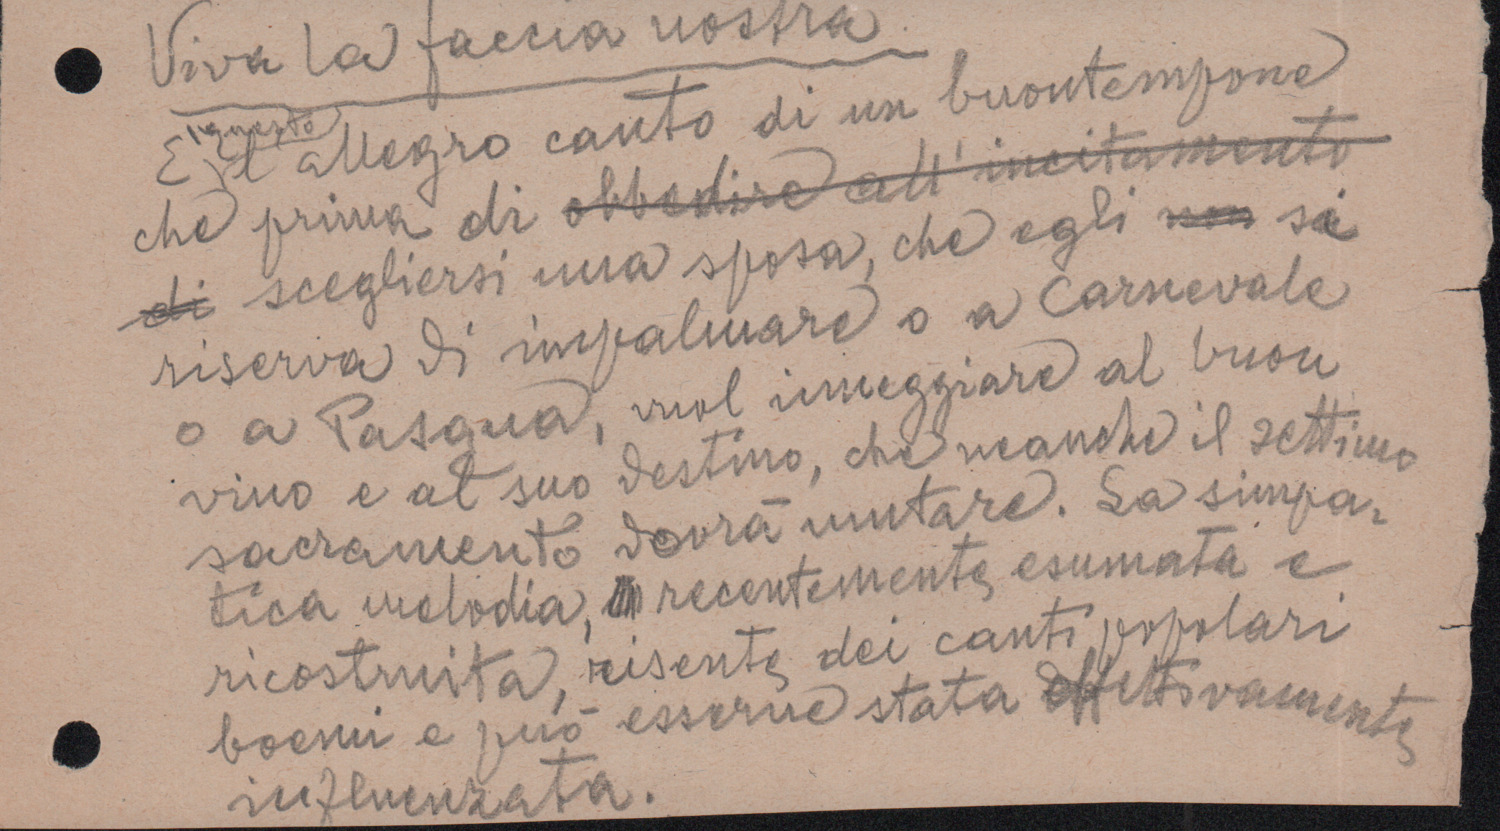 Viva la faccia nostra
È questo l'allegro canto di un buontempone
che prima di obbedire all'incitamento
di scegliersi una sposa, che egli non si
riserva di impalmare o a Carnevale
o a Pasqua, vuol inneggiare al buon
vino e al suo destino, che neanche il settimo
sacramento dovrà mutare. La simpa-
tica melodia, recentemente esumata e
ricostruita, risente dei canti popolari
boemi e può esserne stata effettivamente
influenzata.